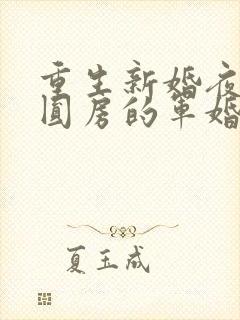 重生新婚夜
圆房的军婚
夏玉成